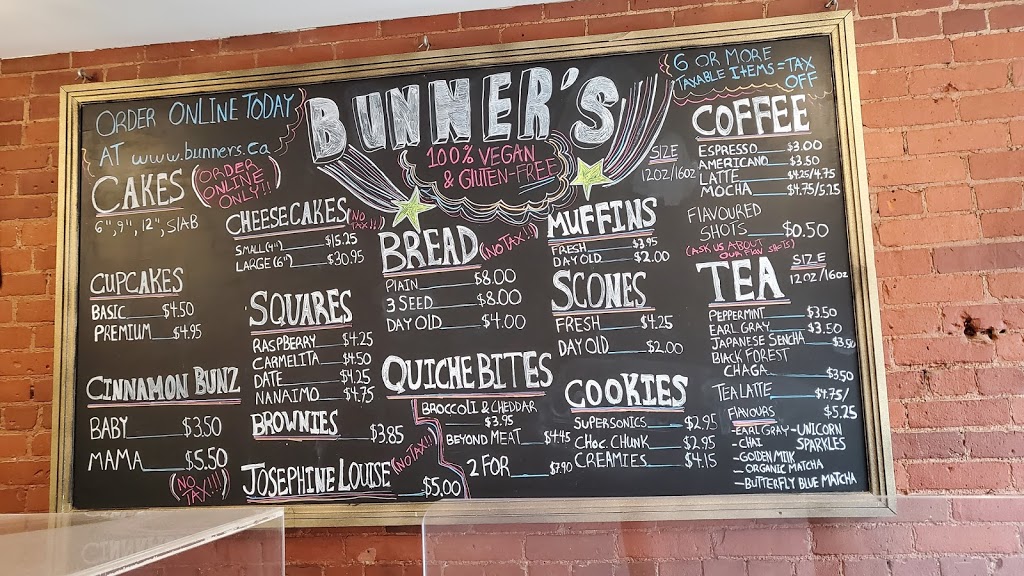 ORDER ONLINE TODAY
AT www.bunners.ca
BUNNER'S
100% VEGAN
& GLUTEN-FREE
6 OR MORE
TAXABLE ITEMS = TAX
OFF
CAKES (ORDER
ONLINE
ONLY!!)
6", 9", 12", SLAB
CUPCAKES
BASIC $4.50
PREMIUM $4.95
CINNAMON BUNZ
BABY $3.50
MAMA $5.50
(NO
TAX!!!)
CHEESECAKES (NO
TAX!!!)
SMALL (4") $15.25
LARGE (6") $30.95
SQUARES
RASPBERRY $4.25
CARMELITA $4.50
DATE $4.25
NANAIMO $4.75
BROWNIES
$3.85
JOSEPHINE LOUISE (NO TAX!!)
$5.00
BREAD (NO TAX!!)
PLAIN $8.00
3 SEED $8.00
DAY OLD $4.00
QUICHE BITES
BROCCOLI & CHEDDAR
$3.95
BEYOND MEAT $4.45
2 FOR $7.90
MUFFINS
FRESH $3.95
DAY OLD $2.00
SCONES
FRESH $4.25
DAY OLD $2.00
COOKIES
SUPERSONICS $2.95
CHOC. CHUNK $2.95
CREAMIES $4.15
COFFEE
SIZE
12OZ/16OZ
ESPRESSO $3.00
AMERICANO $3.50
LATTE $4.25/4.75
MOCHA $4.75/5.25
FLAVOURED
SHOTS $0.50
(ASK US ABOUT
OUR
TEA
SIZE
12OZ/16OZ
PEPPERMINT $3.50
EARL GRAY $3.50
JAPANESE SENCHA $3.50
BLACK FOREST
CHAGA $3.50
TEA LATTE $4.75/
$5.25
FLAVOURS
- EARL GRAY - UNICORN
SPARKLES
- CHAI
- GOLDEN MILK
- ORGANIC MATCHA
- BUTTERFLY BLUE MATCHA